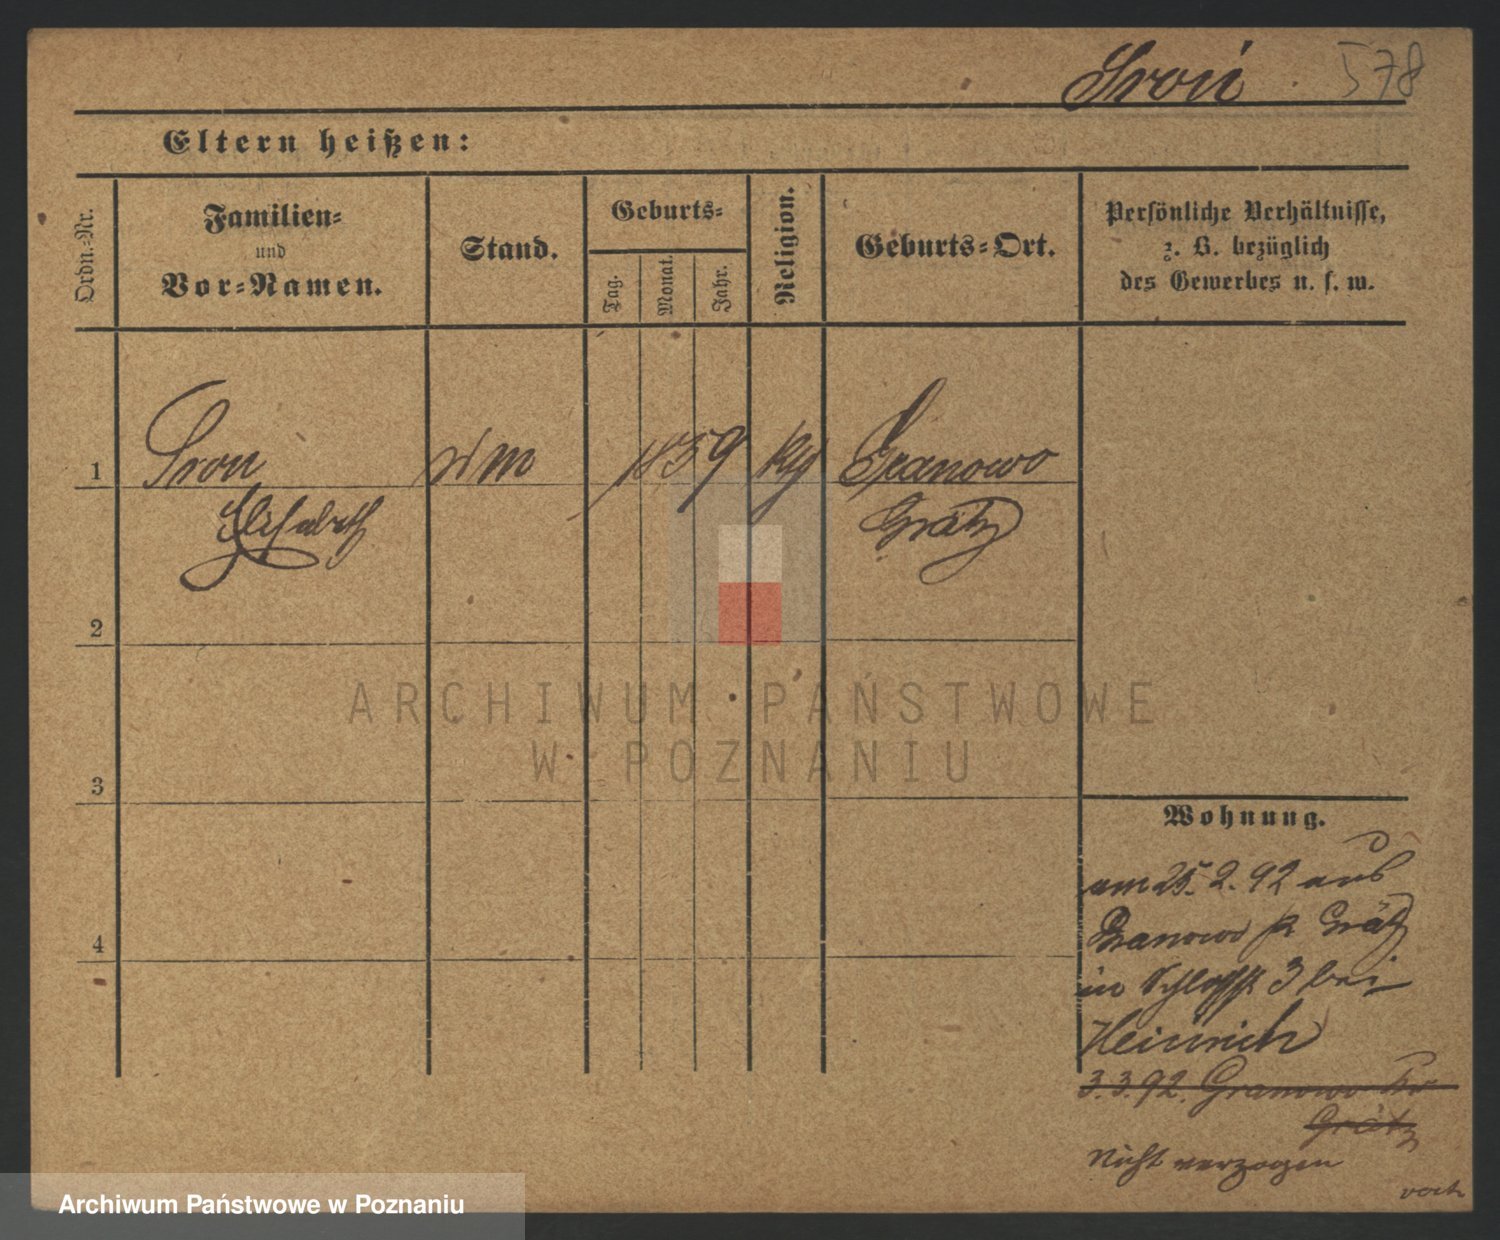 Sroń 578
Eltern heißen:
Ordn.=Nr.
Familien=
und
Vor=Namen.
Stand.
Geburts=
Tag.
Monat.
Jahr.
Religion.
Geburts=Ort.
Persönliche Verhältnisse,
z. B. bezüglich
des Gewerbes u. s. w.
1
Sron
Elisabeth
1859
Granowo
Grätz
2
3
4
Wohnung.
am 25. 2. 92 aus
Granowo Grätz
in Schloßstr 3 bei
Heinrich
3.3.92. Granowo Kr
Grätz
Nicht verzogen
ARCHIWUM PAŃSTWOWE
W POZNANIU
Archiwum Państwowe w Poznaniu